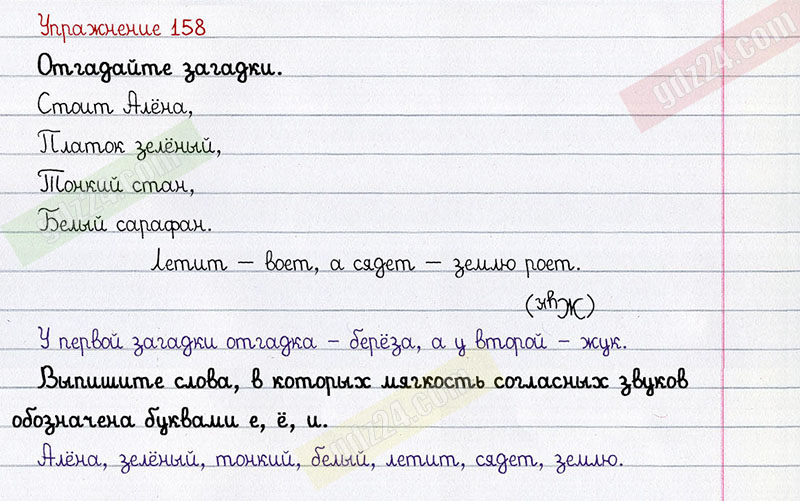 Упражнение 158
gdz24.com
Отгадайте загадки.
Стоит Алёна,
Платок зелёный,
gdz24.com
Тонкий стан,
Белый сарафан.
Летит – воет, а сядет – землю роет.
(Жук)
У первой загадки отгадка – берёза, а у второй – жук.
Выпишите слова, в которых мягкость согласных звуков
обозначена буквами е, ё, и.
gdz24.com
Алёна, зелёный, тонкий, белый, летит, сядет, землю.